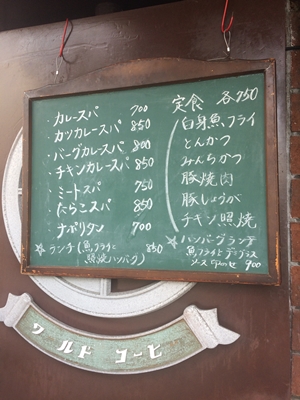 ・カレースパ 700
・カツカレースパ 850
・バーグカレースパ 800
・チキンカレースパ 850
・ミートスパ 750
・たらこスパ 850
・ナポリタン 700
☆ランチ(魚フライに 850
照焼ハンバグ)
定食 各750
白身魚フライ
とんかつ
みんちかつ
豚焼肉
豚しょうが
チキン照焼
☆ハンバーグランチ
魚フライと デミグラス
ソース 900
ワールド コーヒ